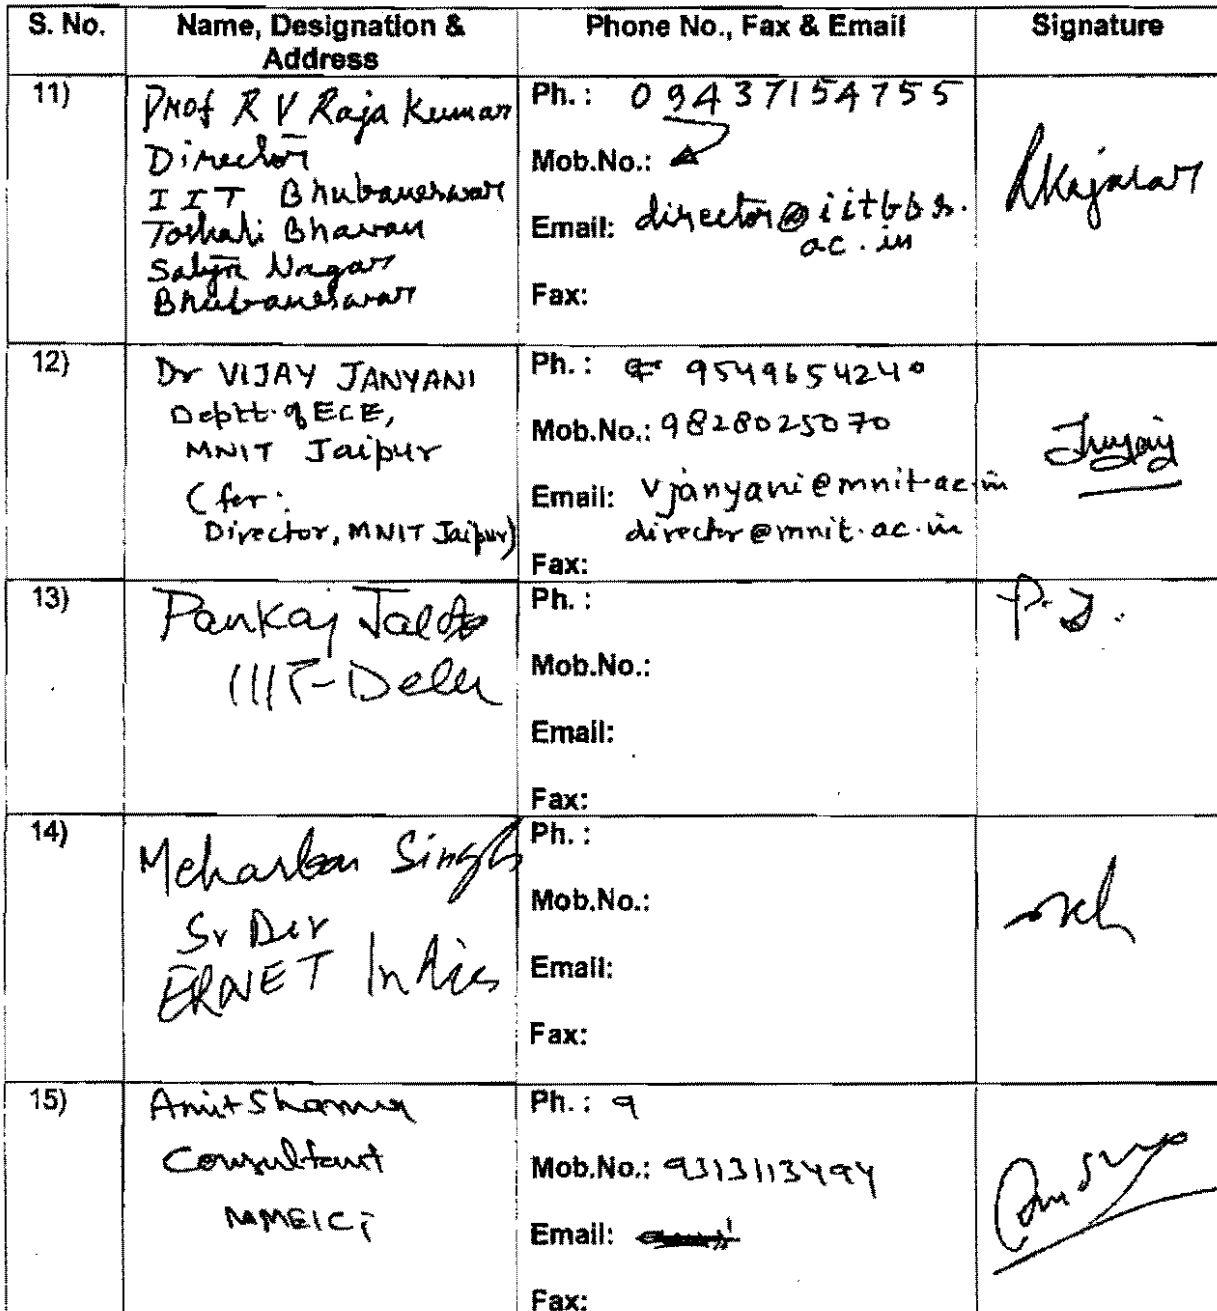 S. No. Name, Designation & Address Phone No., Fax & Email Signature
11)
Prof R V Raja Kumar
Director
IIT Bhubaneswar
Toshali Bhavan
Satya Nagar
Bhubaneswar
Ph. : 09437154755
Mob.No.:
Email: director@iitbbs.
ac.in
Fax:
12)
Dr VIJAY JANYANI
Deptt. of ECE,
MNIT Jaipur
(for:
Director, MNIT Jaipur)
Ph. : 9549654240
Mob.No.: 9828025070
Email: vjanyani@mnit.ac.in
director@mnit.ac.in
Fax:
13)
Pankaj Jalote
IIIT-Delhi
Ph. :
Mob.No.:
Email:
Fax:
P.J.
14)
Meharban Singh
Sr Dir
ERNET India
Ph. :
Mob.No.:
Email:
Fax:
15)
Amit Sharma
Consultant
NMEICT
Ph. : 9
Mob.No.: 9313113494
Email:
Fax: